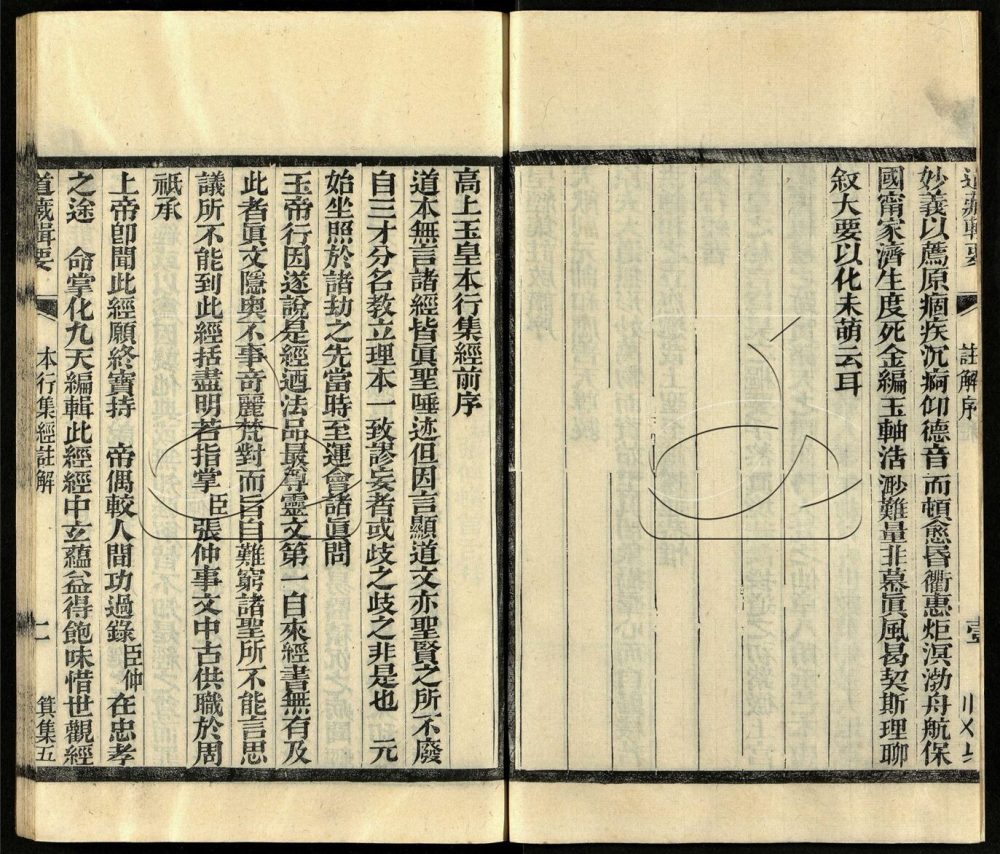 道藏輯要 註解序 壹
妙義以薦原痼疾沉痾仰德音而頓愈昏衢惠炬溟渤舟航保
國甯家濟生度死金編玉軸浩渺難量非慕眞風曷契斯理聊
敘大要以化未萌云耳
高上玉皇本行集經前序
道本無言諸經皆眞聖唾迹但因言顯道文亦聖賢之所不廢
自三才分名教立理本一致謬妄者或歧之歧之非是也 元
始坐照於諸劫之先當時至運會諸眞問
玉帝行因遂說是經迺法品最尊靈文第一自來經書無有及
此者眞文隱奥不事奇麗梵對而旨自難窮諸聖所不能言思
議所不能到此經括盡明若指掌臣張仲事文中古供職於周
祇承
上帝卽聞此經願終寶持 帝偶較人間功過錄臣仲在忠孝
之途 命掌化九天編輯此經經中玄蘊益得飽味惜世觀經
道藏輯要 本行集經註解 二 箕集五